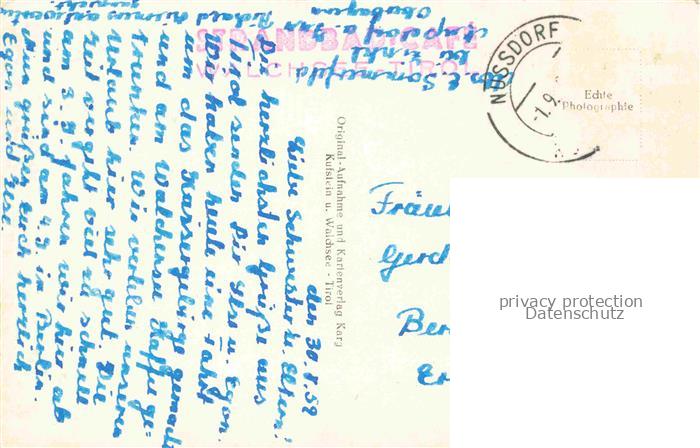 den 30.8.59
Liebe Schwester u. Eltern!
Die herzlichsten Grüße aus
Tirol senden Dir Ilse u. Egon.
Wir haben heute eine Fahrt
um das Kaisergebirge gemacht
und am Walchensee Kaffe ge=
trunken. Wir verleben unseren
Urlaub hier sehr gut. Die
Zeit vergeht viel zu schnell
am 3.9. fahren wir hier ab
und sind am 4.9. in Berlin.
Nun grüßen Euch herzlich
Egon und Ilse.
STRANDBAD-CAFE
WALCHSEE TIROL
Original-Aufnahme und Kartenverlag Karg
Kufstein u. Walchsee - Tirol
NUSSDORF
-1.9.
Echte
Photographie
Fräul
Ber
privacy protection
Datenschutz